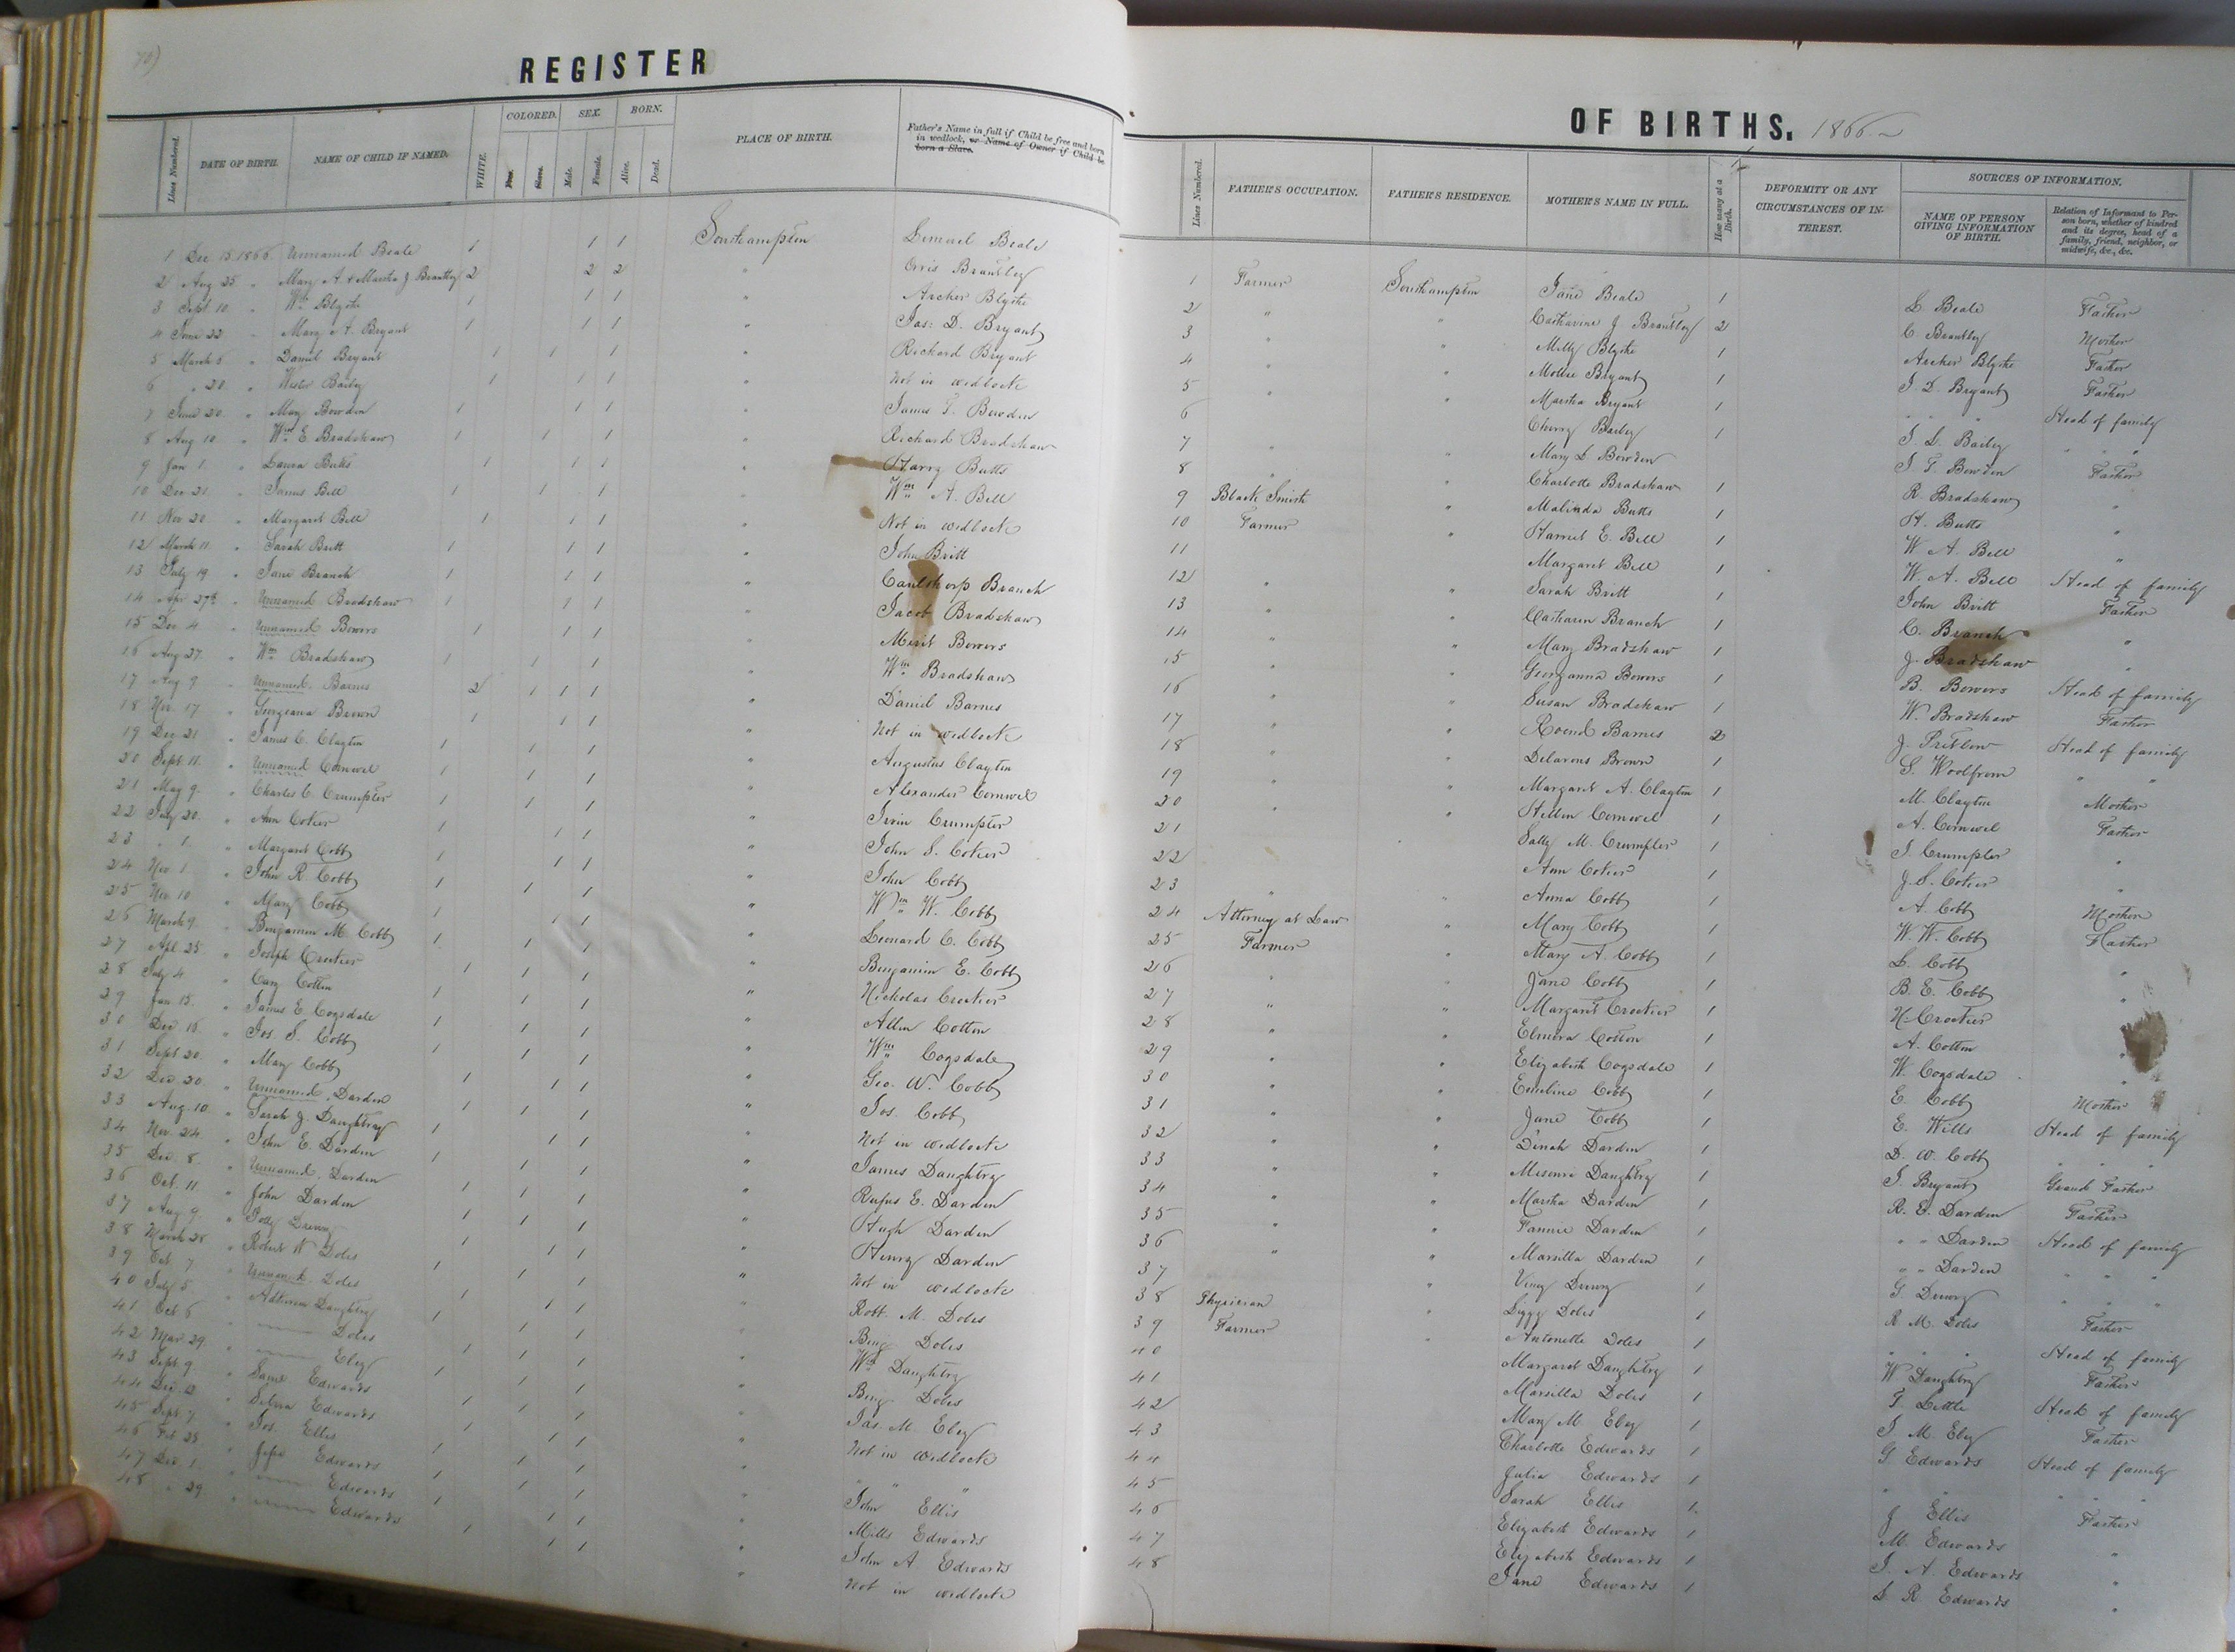 REGISTER
COLORED. SEX. BORN.
Lines Numbered. DATE OF BIRTH. NAME OF CHILD IF NAMED. WHITE. Free. Slave. Male. Female. Alive. Dead. PLACE OF BIRTH. Father's Name in full if Child be free and born in wedlock, or Name of Owner if Child be born a Slave.
1 Dec 15. 1866. Unnamed Beale 1 1 1 Southampton Lemuel Beale
2 Aug 25. " Mary A. & Martha J Brantley 2 2 2 " Orris Brantley
3 Sept 10. " Wm Blythe 1 1 1 " Archer Blythe
4 June 22 " Mary A. Bryant 1 1 1 " Jas: D. Bryant
5 March 5 " Daniel Bryant 1 1 1 " Richard Bryant
6 " 20. " Bailey 1 1 1 " Not in wedlock
7 June 20. " May Bowden 1 1 1 " James T. Bowden
8 Aug 10. " Wm E. Bradshaw 1 1 1 " Richard Bradshaw
9 Jan 1. " Laura Butts 1 1 1 " Harry Butts
10 Dec 21. " James Bell 1 1 1 " Wm A. Bell
11 Nov 20 " Margaret Bell 1 1 1 " Not in wedlock
12 March 11. " Sarah Britt 1 1 1 " John Britt
13 July 19. " Jane Branch 1 1 1 " Caulthorp Branch
14 Apr 27th " Unnamed Bradshaw 1 1 1 " Jacob Bradshaw
15 Dec 4. " Unnamed Bowers 1 1 1 " Merit Bowers
16 Aug 27. " Wm Bradshaw 1 1 1 " Wm Bradshaw
17 Aug 9 " Unnamed. Barnes 2 1 1 1 " Daniel Barnes
18 Nov. 17 " Georgeana Brown 1 1 1 " Not in wedlock
19 Dec 21 " James C. Clayton 1 1 1 " Augustus Clayton
20 Sept. 11. " Unnamed Cornwel 1 1 1 " Alexander Cornwel
21 May 9. " Charles C. Crumpler 1 1 1 " Irvin Crumpler
22 July 20. " Ann Coker 1 1 1 " John S. Coker
23 " 1. " Margaret Cobb 1 1 1 " John Cobb
24 Nov 1. " John R. Cobb 1 1 1 " Wm W. Cobb
25 Nov 10 " Mary Cobb 1 1 1 " Leonard C. Cobb
26 March 9. " Benjamin M. Cobb 1 1 1 " Benjamin E. Cobb
27 Apl 25. " Joseph Crocker 1 1 1 " Nickolas Crocker
28 July 4 " Cary Cotten 1 1 1 " Allen Cotten
29 Jan 15. " James E. Cogsdale 1 1 1 " Wm Cogsdale
30 Dec 16 " Jos. S. Cobb 1 1 1 " Geo. W. Cobb
31 Sept 20. " May Cobb 1 1 1 " Jos. Cobb
32 Dec 20. " Unnamed. Darden 1 1 1 " Not in wedlock
33 Aug. 10. " Sarah J. Daughtrey 1 1 1 " James Daughtry
34 Nov. 24. " John E. Darden 1 1 1 " Rufus E. Darden
35 Dec. 8. " Unnamed. Darden 1 1 1 " Hugh Darden
36 Oct. 11. " John Darden 1 1 1 " Henry Darden
37 Aug 9. " Polly Drewry 1 1 1 " Not in wedlock
38 March 28 " Robert W Doles 1 1 1 " Robt. M. Doles
39 Oct 7. " Unnamed. Doles 1 1 1 " Benj Doles
40 July 5 " Daughtry 1 1 1 " Wm Daughtry
41 Oct 6 " —— Doles 1 1 1 " Benj Doles
42 Mar 29. " —— Eley 1 1 1 " Jas. M. Eley
43 Sept. 9. " Saml Edwards 1 1 1 " Not in wedlock
44 Dec. " Edwards 1 1 1 " " " "
45 Sept 7. " Jos. Ellis 1 1 1 " John Ellis
46 Feb 28 " Edwards 1 1 1 " Mills Edwards
47 Dec. 1. " —— Edwards 1 1 1 " John A Edwards
48 " 29. " —— Edwards 1 1 1 " Not in wedlock
OF BIRTHS. 1866.
Lines Numbered. FATHER'S OCCUPATION. FATHER'S RESIDENCE. MOTHER'S NAME IN FULL. How many at a Birth. DEFORMITY OR ANY CIRCUMSTANCES OF INTEREST. SOURCES OF INFORMATION.
NAME OF PERSON GIVING INFORMATION OF BIRTH. Relation of Informant to Person born, whether of kindred and its degree, head of a family, friend, neighbor, or midwife, &c., &c.
1 Farmer Southampton Jane Beale 1 L. Beale Father
2 " " Catharine J. Brantley 2 C Brantley Mother
3 " " Milly Blythe 1 Archer Blythe Father
4 " " Mollie Bryant 1 J. D. Bryant Father
5 " " Martha Bryant 1 " " " Head of family
6 Cherry Bailey 1 J. L. Bailey " "
7 " " Mary L Bowden J T. Bowden Father
8 " " Charlotte Bradshaw 1 R. Bradshaw "
9 Black Smith " Malinda Butts 1 H. Butts "
10 Farmer " Harriet E. Bell 1 W A. Bell "
11 Margaret Bell 1 W. A. Bell Head of family
12 " " Sarah Britt 1 John Britt Father
13 " " Catharin Branch 1 C. Branch "
14 " " Mary Bradshaw 1 J. Bradshaw "
15 " " Georganna Bowers 1 B. Bowers Head of family
16 " " Susan Bradshaw 1 W. Bradshaw Father
17 " " Barnes 2 J. Pretlow Head of family
18 Brown 1 S. Woolfrom " "
19 " " Margaret A. Clayton 1 M. Clayton Mother
20 " " Cornwel 1 A. Cornwel Father
21 Sally M. Crumpler 1 I. Crumpler "
22 Ann Coker 1 J. S. Coker "
23 " " Anna Cobb 1 A. Cobb Mother
24 Attorney at Law " Mary Cobb 1 W. W. Cobb Father
25 Farmer " Mary A. Cobb 1 L. Cobb "
26 " " Jane Cobb 1 B. E. Cobb "
27 " " Margaret Crocker 1 N. Crocker
28 " " Elmira Cotton 1 A. Cotten "
29 " " Elizabeth Cogsdale 1 W. Cogsdale "
30 " " Emeline Cobb 1 E. Cobb Mother
31 " " Jane Cobb 1 E. Wills Head of family
32 " " Dinah Darden 1 D. W. Cobb " " "
33 " " Misonri Daughtry 1 J. Bryant Grand Father
34 " " Martha Darden 1 R. E. Darden Father
35 " " Fannie Darden 1 " " Darden Head of family
36 " " Marsilla Darden 1 " " Darden " " "
37 " Viney Drewry 1 G. Drewry " " "
38 Physician " Liggy Doles 1 R M. Doles Father
39 Farmer " Antonette Doles 1 " " " Head of family
40 Margaret Daughtry 1 W Daughtry Father
41 Marsilla Doles 1 T. Little Head of family
42 Mary M. Eley 1 J. M. Eley Father
43 Charlotte Edwards 1 G Edwards Head of family
44 Julia Edwards 1 " " " " "
45 Sarah Ellis 1. J Ellis Father
46 Elizabeth Edwards 1 M. Edwards "
47 Elizabeth Edwards 1 J. A. Edwards "
48 Jane Edwards 1 S. R. Edwards "